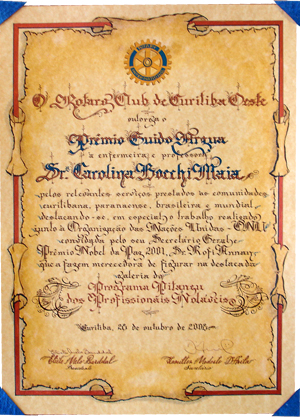 O Rotary Club de Curitiba Oeste
outorga o
Prêmio Guido
à enfermeira e professora
Sr. Carolina Bocchi Maia
pelos relevantes serviços prestados às comunidades
curitibana, paranaense, brasileira e mundial,
destacando-se, em especial, o trabalho realizado
junto à Organização das Nações Unidas - ONU
convidada pelo seu Secretário Geral e
Prêmio Nobel da Paz 2001, Sr. Kofi Annan,
que a fazem merecedora de figurar na destacada
galeria do
Programa Pitangui
dos Profissionais Notáveis
Curitiba, 25 de outubro de 2005
Presidente
Secretário